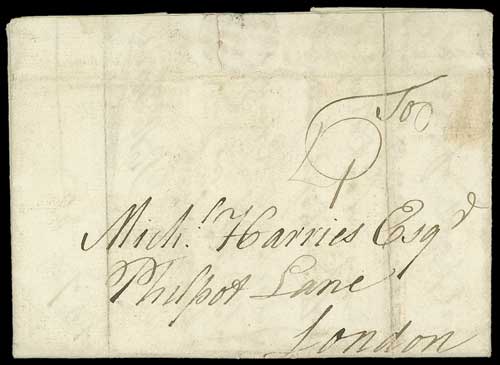 To
Mich.l Harries Esq.d
Philpot Lane
London